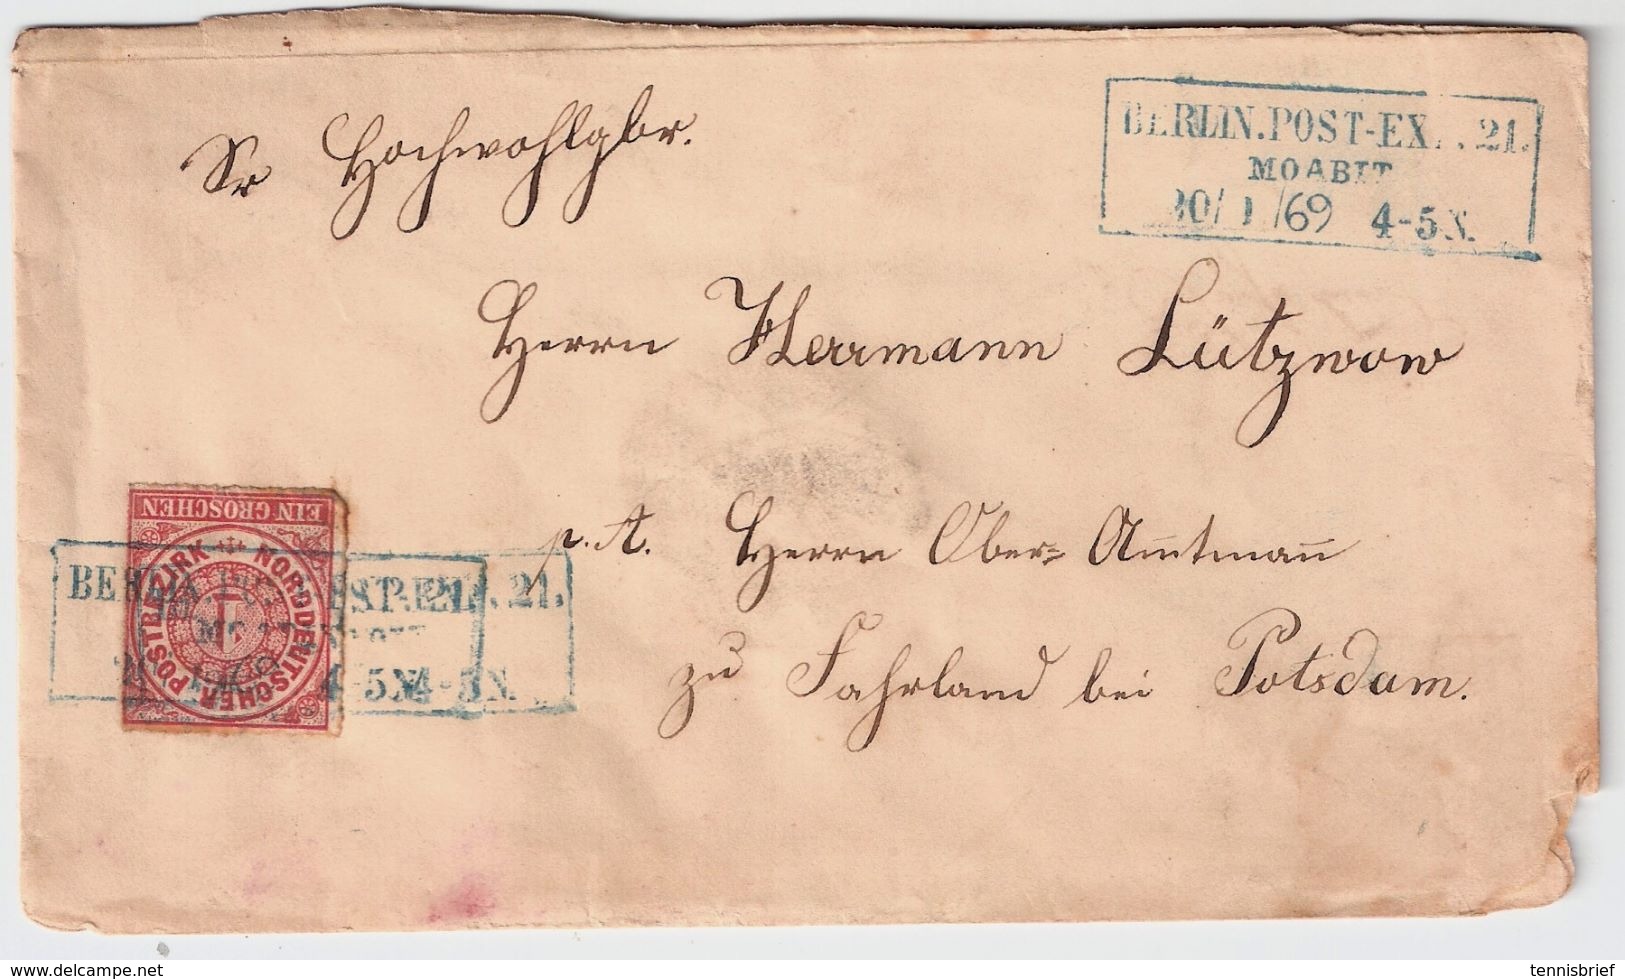 BERLIN.POST-EX. . 21.
MOABIT
/69 4-5 N.
Sr Hochwohlgbr.
Herrn Herrmann Lützwow
p. A. Herrn Ober= Amtmann
zu Fahrland bei Potsdam.
EIN GROSCHEN
NORDDEUTSCHER POSTBEZIRK
1
BERLIN.POST 21.
4-5N 4-5N.
© www.delcampe.net
tennisbrief